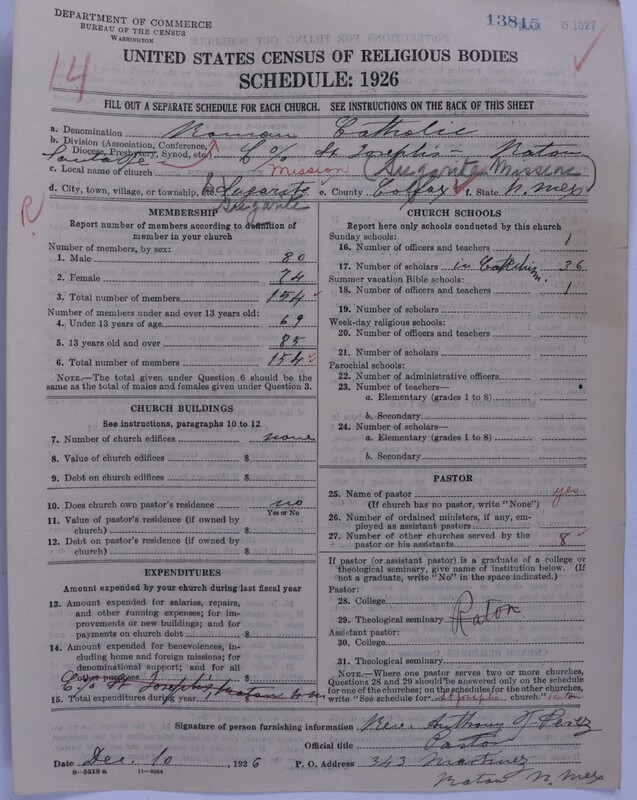 DEPARTMENT OF COMMERCE
BUREAU OF THE CENSUS
WASHINGTON
13815
5 1927
14
UNITED STATES CENSUS OF RELIGIOUS BODIES
SCHEDULE: 1926
FILL OUT A SEPARATE SCHEDULE FOR EACH CHURCH. SEE INSTRUCTIONS ON THE BACK OF THIS SHEET
a. Denomination Roman Catholic
b. Division (Association, Conference, Diocese, Presbytery, Synod, etc.) C/o St Josephs - Raton
c. Local name of church Mission (Sugarite Mission)
d. City, town, village, or township, Sugarite e. County Colfax f. State N. Mex
R
MEMBERSHIP
Report number of members according to definition of
member in your church
Number of members, by sex:
1. Male 80
2. Female 74
3. Total number of members 154
Number of members under and over 13 years old:
4. Under 13 years of age 69
5. 13 years old and over 85
6. Total number of members 154
NOTE.—The total given under Question 6 should be the
same as the total of males and females given under Question 3.
CHURCH BUILDINGS
See instructions, paragraphs 10 to 12
7. Number of church edifices none
8. Value of church edifices $
9. Debt on church edifices $
10. Does church own pastor's residence no
Yes or No
11. Value of pastor's residence (if owned by
church) $
12. Debt on pastor's residence (if owned by
church) $
EXPENDITURES
Amount expended by your church during last fiscal year
13. Amount expended for salaries, repairs,
and other running expenses; for im-
provements or new buildings; and for
payments on church debt $
14. Amount expended for benevolences,
including home and foreign missions; for
denominational support; and for all
other purposes
C/o St Josephs, Raton
15. Total expenditures during year $
CHURCH SCHOOLS
Report here only schools conducted by this church
Sunday schools:
16. Number of officers and teachers 1
17. Number of scholars in Catechism. 36
Summer vacation Bible schools:
18. Number of officers and teachers 1
19. Number of scholars
Week-day religious schools:
20. Number of officers and teachers
21. Number of scholars
Parochial schools:
22. Number of administrative officers
23. Number of teachers—
a. Elementary (grades 1 to 8)
b. Secondary
24. Number of scholars—
a. Elementary (grades 1 to 8)
b. Secondary
PASTOR
25. Name of pastor yes
(If church has no pastor, write "None")
26. Number of ordained ministers, if any, em-
ployed as assistant pastors
27. Number of other churches served by the
pastor or his assistants 8
If pastor (or assistant pastor) is a graduate of a college or
theological seminary, give name of institution below. (If
not a graduate, write "No" in the space indicated.)
Pastor:
28. College
29. Theological seminary Raton
Assistant pastor:
30. College
31. Theological seminary
NOTE.—Where one pastor serves two or more churches,
Questions 28 and 29 should be answered only on the schedule
for one of the churches; on the schedules for the other churches,
write "See schedule for St Josephs church." Raton
Signature of person furnishing information Rev. Anthony J Perez
Official title Pastor
Date Dec. 10, 1926 P. O. Address 343 Martinez
Raton N. Mex
8-5518 a 11-9054